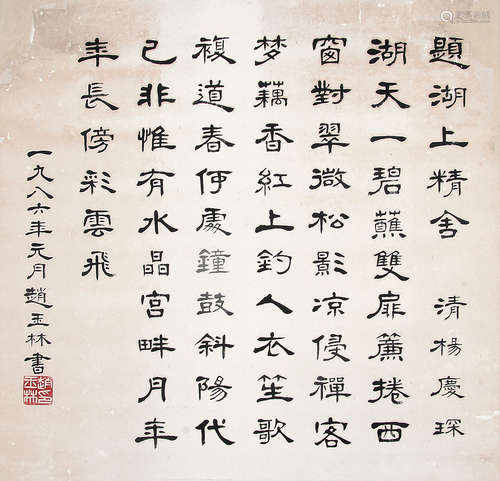 題湖上精舍 清楊慶琛
湖天一碧蕉雙扉簾捲西
窗對翠微松影凉侵禪客
梦藕香紅上釣人衣笙歌
複道春何處鐘鼓斜陽代
已非惟有水晶宮畔月年
年長傍彩雲飛
一九八六年元月趙玉林書